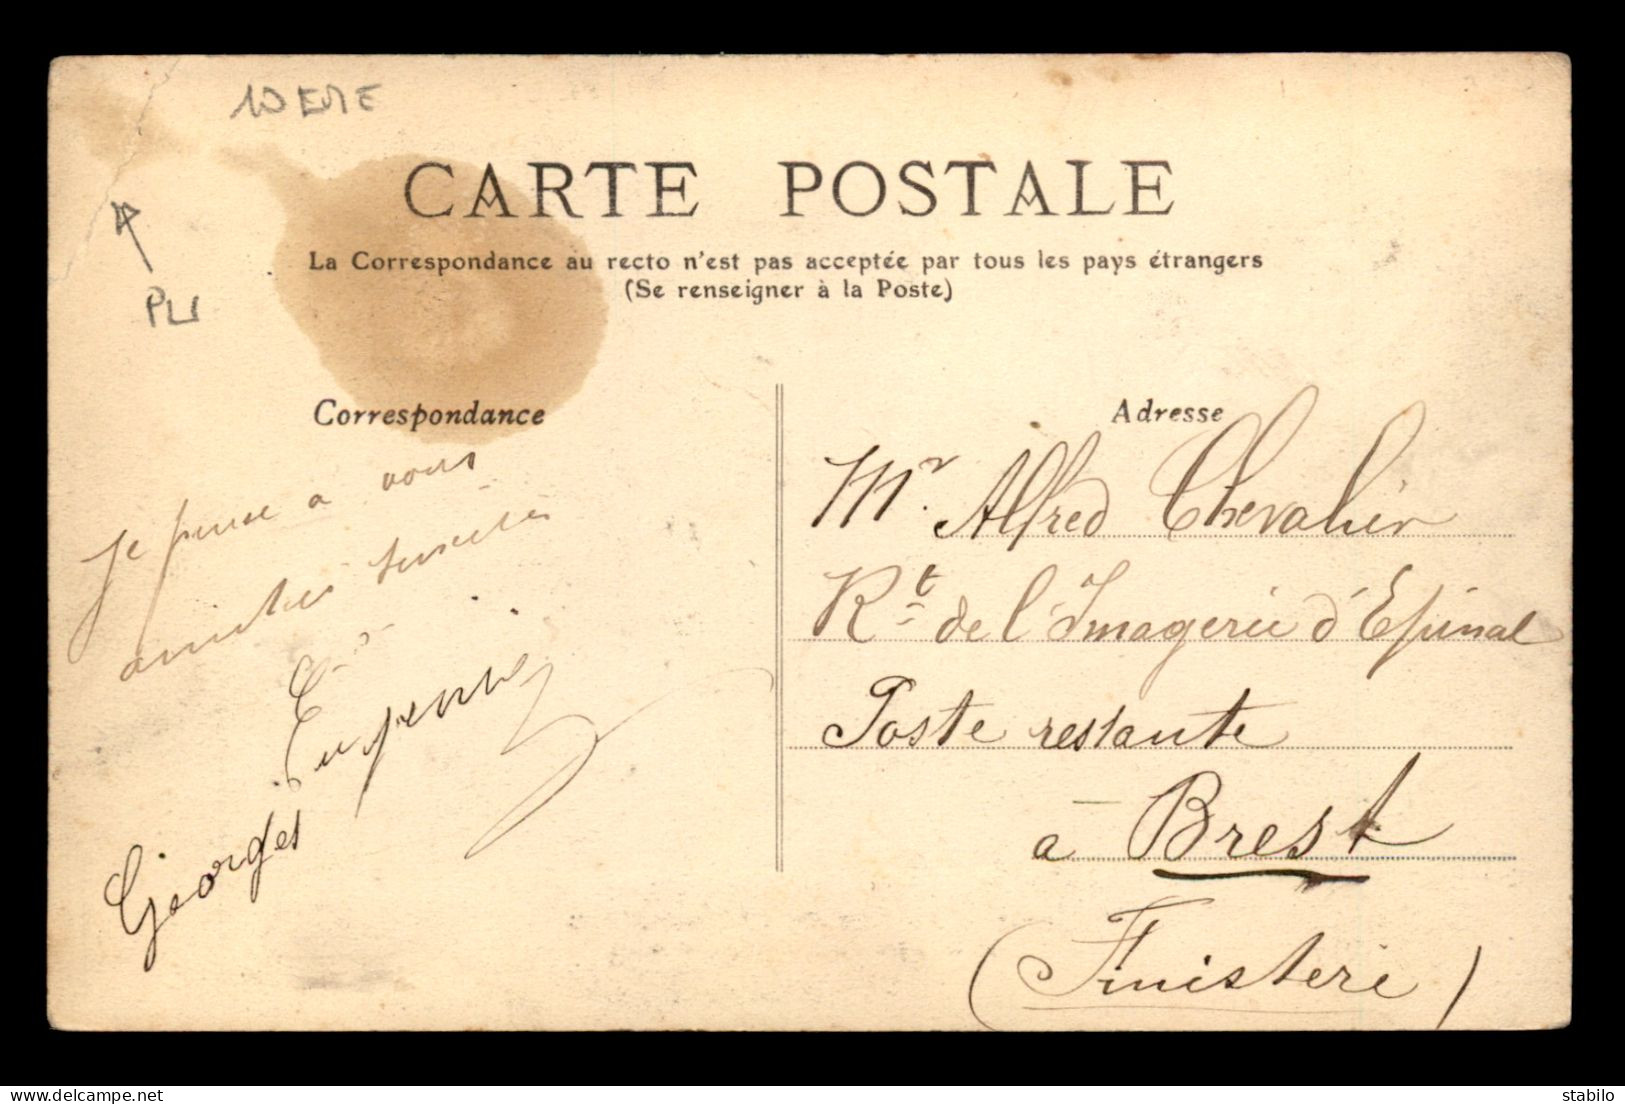 10 EME
PLI
CARTE POSTALE
La Correspondance au recto n'est pas acceptée par tous les pays étrangers
(Se renseigner à la Poste)
Correspondance
Je pense a vous
amitiés
Georges
Adresse
Mr. Alfred Chevalier
Rt de l'Imagerie d'Epinal
Poste restante
a Brest
(Finistere)
stabilo